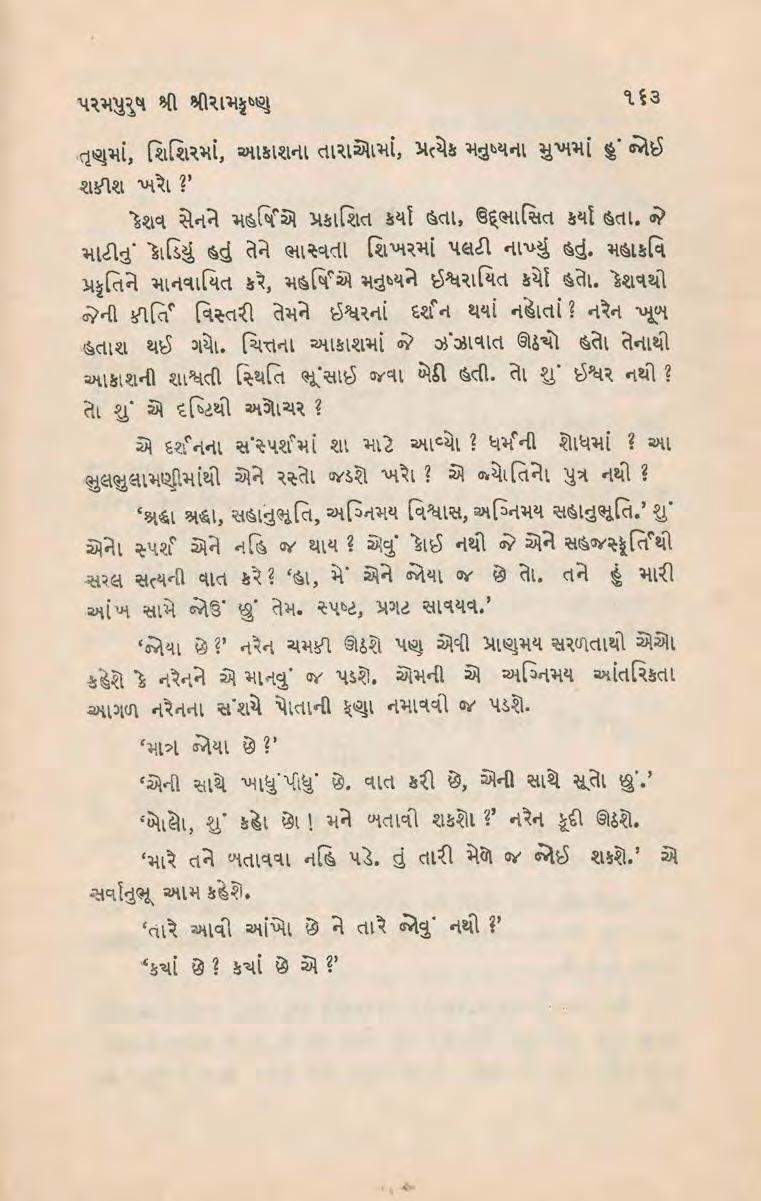 પરમપુરુષ શ્રી શ્રીરામકૃષ્ણ ૧૬૩
તૃણમાં, શિશિરમાં, આકાશના તારાઓમાં, પ્રત્યેક મનુષ્યના મુખમાં હું જોઈ
શકીશ ખરો ?’
કેશવ સેનને મહર્ષિએ પ્રકાશિત કર્યા હતા, ઉદ્‌ભાસિત કર્યા હતા. જે
માટીનું કોડિયું હતું તેને ભાસ્વતા શિખરમાં પલટી નાખ્યું હતું. મહાકવિ
પ્રકૃતિને માનવાયિત કરે, મહર્ષિએ મનુષ્યને ઈશ્વરાયિત કર્યો હતો. કેશવથી
જેની કીર્તિ વિસ્તરી તેમને ઈશ્વરનાં દર્શન થયાં નહોતાં ? નરેન ખૂબ
હતાશ થઈ ગયો. ચિત્તના આકાશમાં જે ઝંઝાવાત ઊઠયો હતો તેનાથી
આકાશની શાશ્વતી સ્થિતિ ભૂંસાઈ જવા બેઠી હતી. તો શું ઈશ્વર નથી ?
તો શું એ દૃષ્ટિથી અગોચર ?
એ દર્શનના સંસ્પર્શમાં શા માટે આવ્યો ? ધર્મની શોધમાં ? આ
ભુલભુલામણીમાંથી એને રસ્તો જડશે ખરો ? એ જ્યોતિનો પુત્ર નથી ?
‘શ્રદ્ધા શ્રદ્ધા, સહાનુભૂતિ, અગ્નિમય વિશ્વાસ, અગ્નિમય સહાનુભૂતિ.’ શું
એનો સ્પર્શ એને નહિ જ થાય ? એવું કોઈ નથી જે એને સહજસ્ફૂર્તિથી
સરલ સત્યની વાત કરે ? ‘હા, મેં એને જોયા જ છે તો. તને હું મારી
આંખ સામે જોઉં છું તેમ. સ્પષ્ટ, પ્રગટ સાવયવ.’
‘જોયા છે ?’ નરેન ચમકી ઊઠશે પણ એવી પ્રાણમય સરળતાથી એઓ
કહેશે કે નરેનને એ માનવું જ પડશે. એમની એ અગ્નિમય આંતરિકતા
આગળ નરેનના સંશયે પોતાની ફણા નમાવવી જ પડશે.
‘માત્ર જોયા છે ?’
‘એની સાથે ખાધુંપીધું છે. વાત કરી છે, એની સાથે સૂતો છું.’
‘બોલો, શું કહો છો ! મને બતાવી શકશો ?’ નરેન કૂદી ઊઠશે.
‘મારે તને બતાવવા નહિ પડે. તું તારી મેળે જ જોઈ શકશે.’ એ
સર્વાનુભૂ આમ કહેશે.
‘તારે આવી આંખો છે ને તારે જોવું નથી ?’
‘કયાં છે ? કયાં છે એ ?’